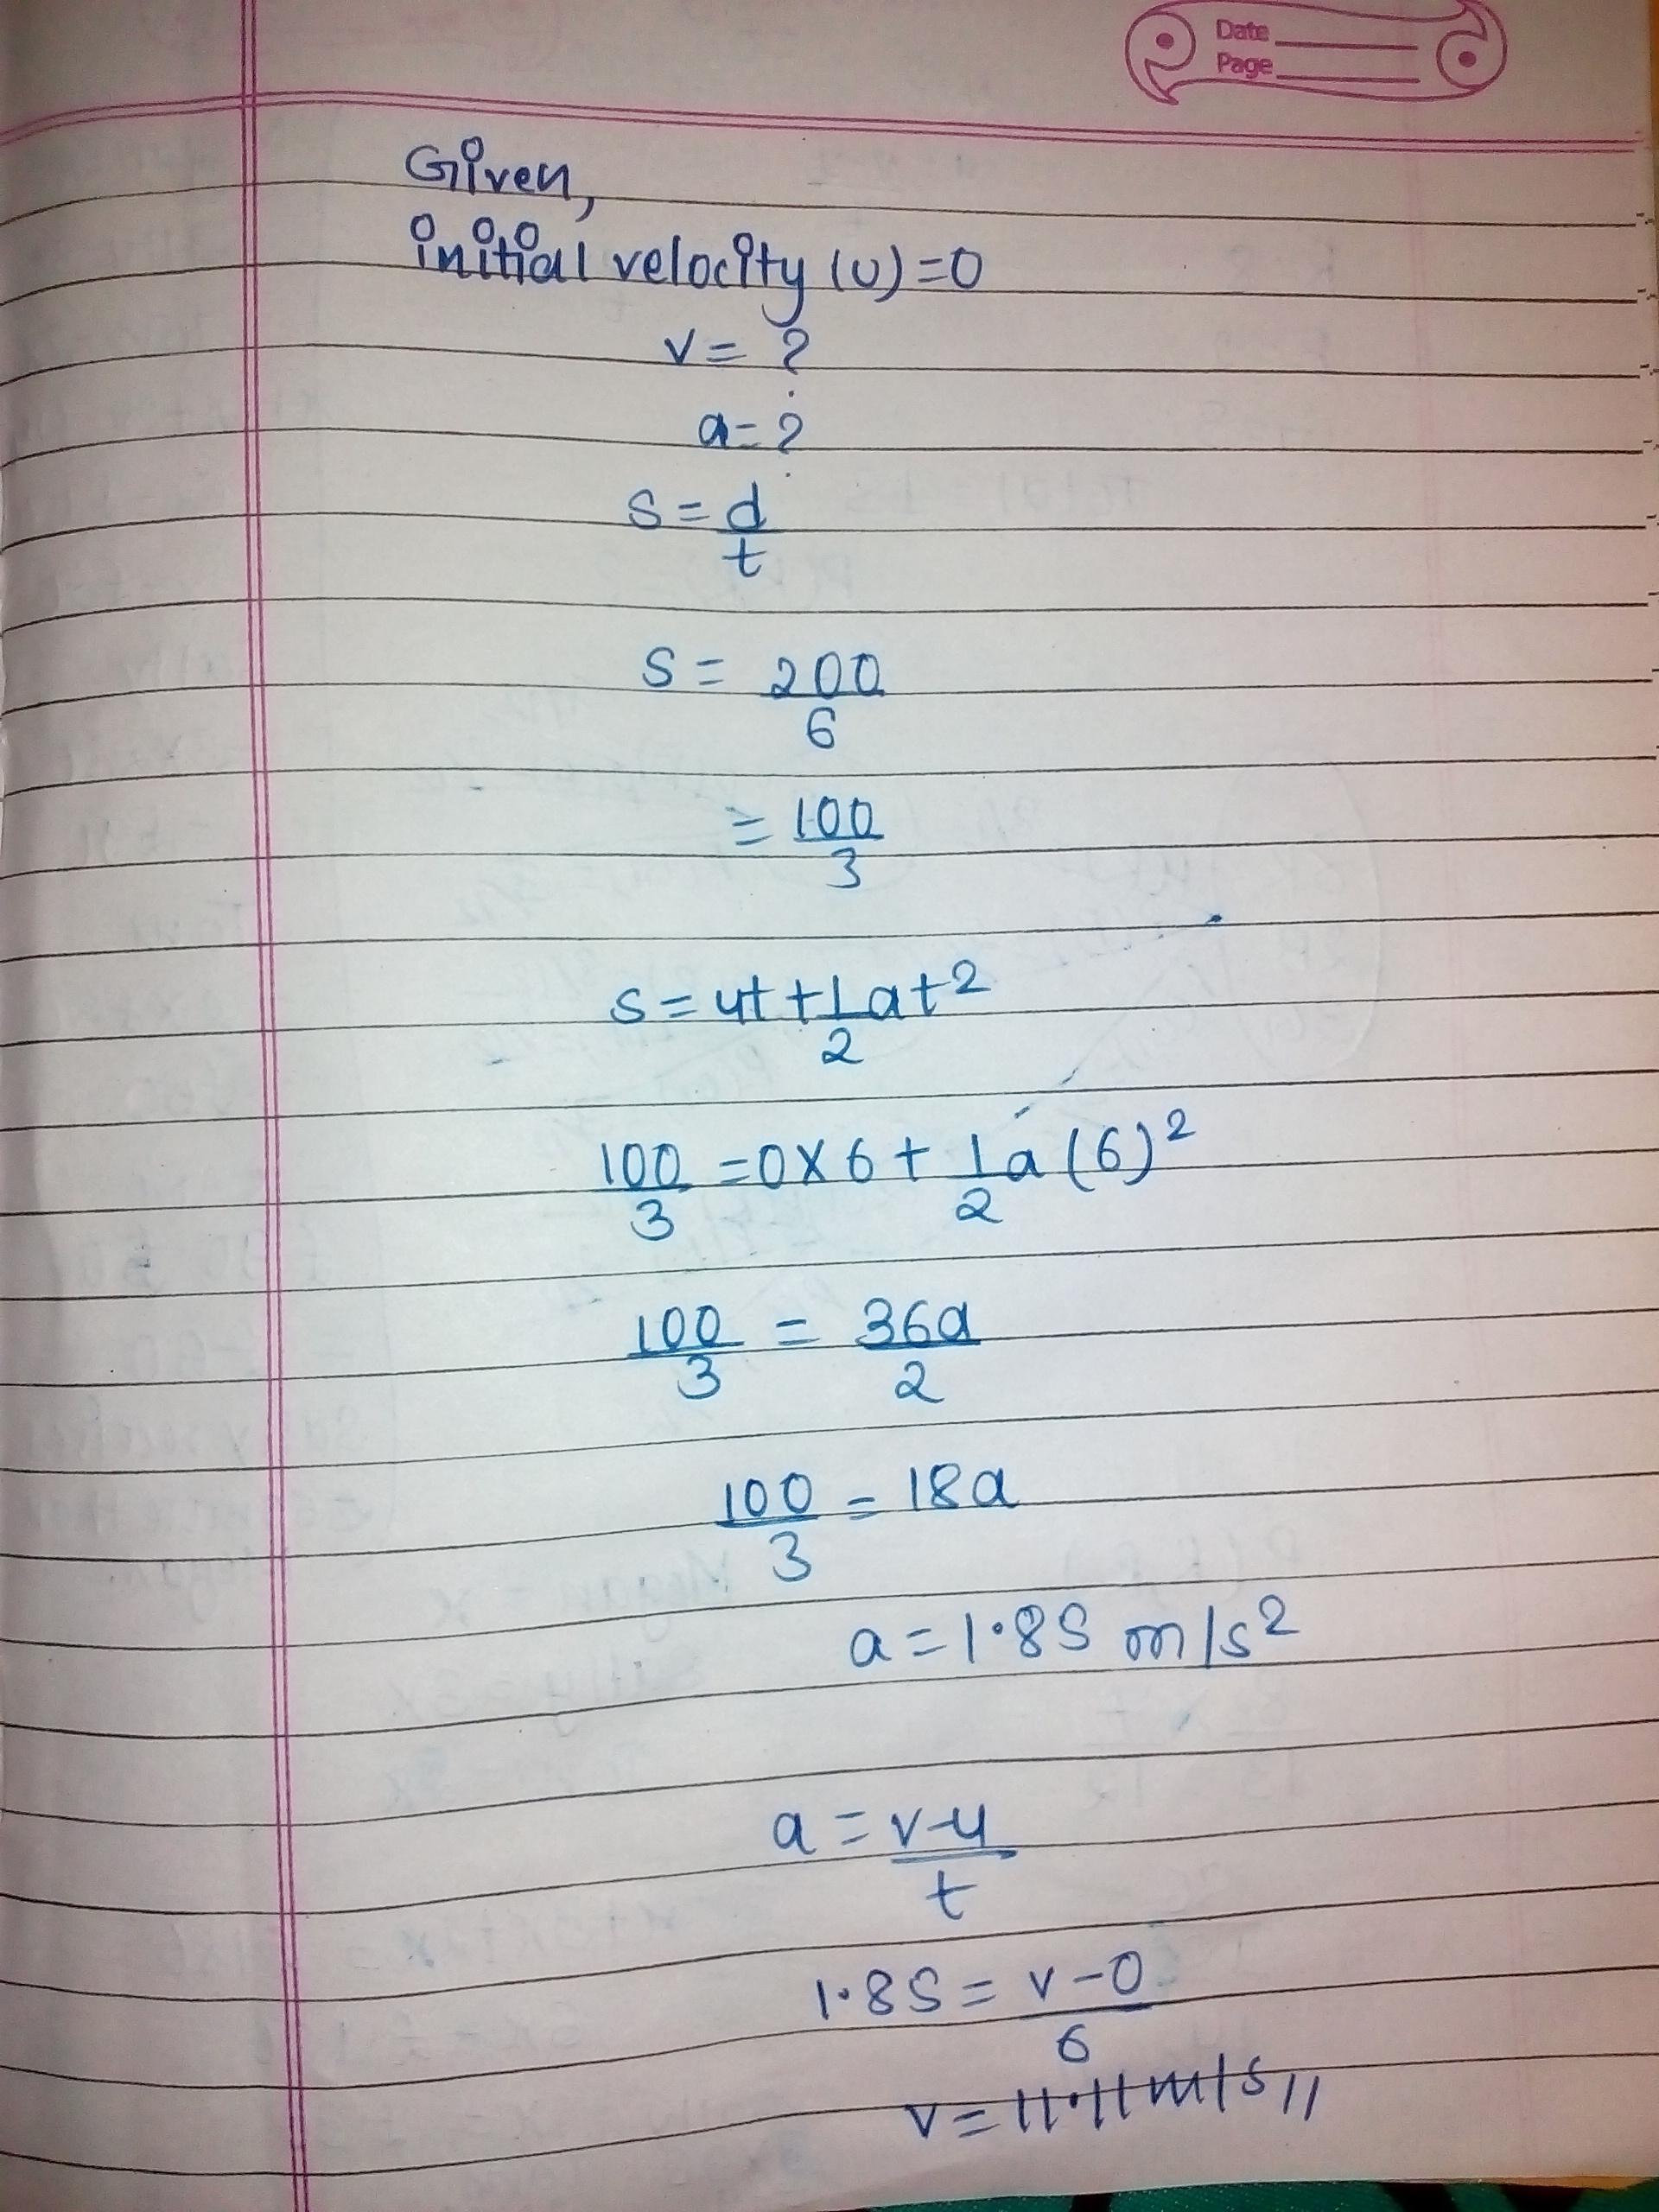 Date
Page
Given,
initial velocity (u) = 0
v = ?
a = ?
s = d/t
s = 200/6
= 100/3
s = ut + 1/2 at²
100/3 = 0 × 6 + 1/2 a (6)²
100/3 = 36a/2
100/3 = 18a
a = 1.85 m/s²
a = v-u/t
1.85 = v-0/6
v = 11.11 m/s //